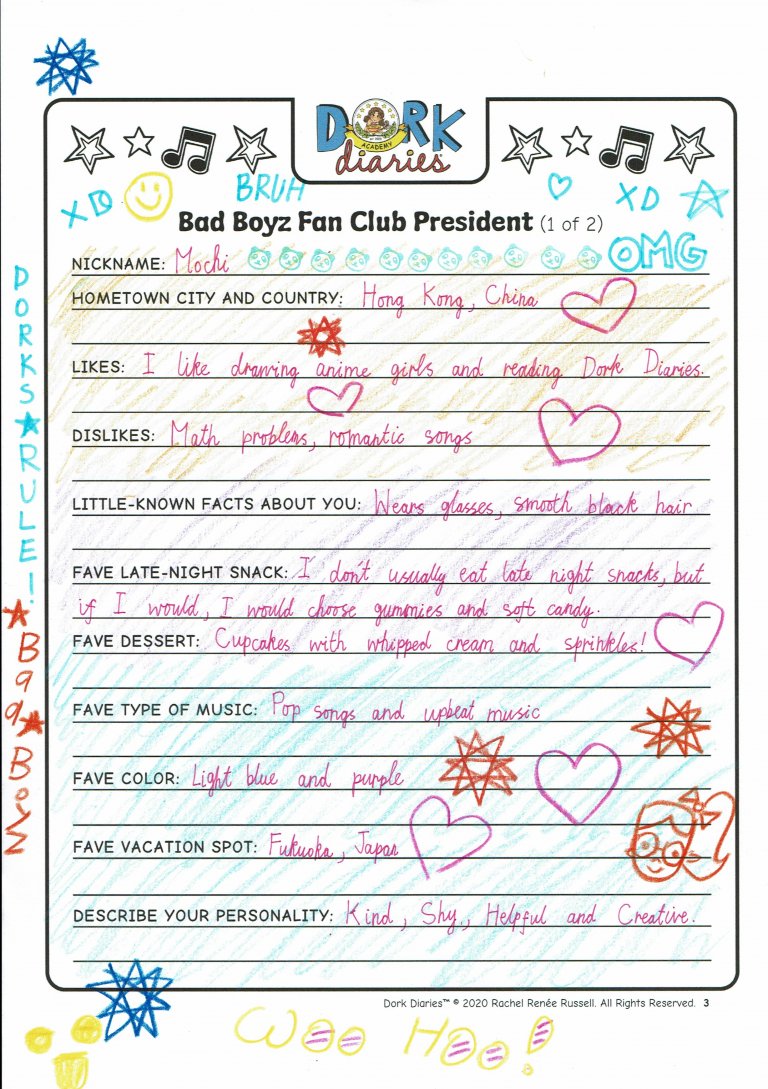 DORK
ACADEMY
diaries
XD
BRUH
XD
Bad Boyz Fan Club President (1 of 2)
NICKNAME: Mochi
OMG
HOMETOWN CITY AND COUNTRY: Hong Kong, China
LIKES: I like drawing anime girls and reading Dork Diaries.
DISLIKES: Math problems, romantic songs
LITTLE-KNOWN FACTS ABOUT YOU: Wears glasses, smooth black hair
FAVE LATE-NIGHT SNACK: I don't usually eat late night snacks, but
if I would, I would choose gummies and soft candy.
FAVE DESSERT: Cupcakes with whipped cream and sprinkles!
FAVE TYPE OF MUSIC: Pop songs and upbeat music
FAVE COLOR: Light blue and purple
FAVE VACATION SPOT: Fukuoka, Japan
DESCRIBE YOUR PERSONALITY: Kind, Shy, Helpful and Creative.
DORKS RULE!
Bad BoyZ
Dork Diaries™ © 2020 Rachel Renée Russell. All Rights Reserved. 3
Woo Hoo!